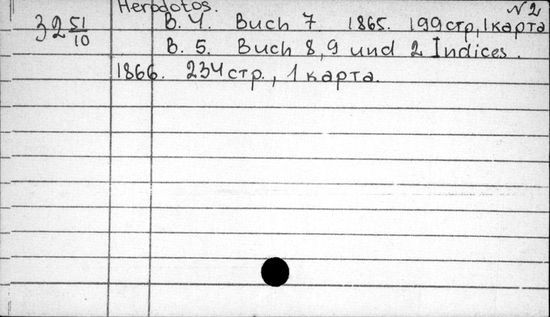 Herodotos. N 2
32 51/10 B. 4. Buch 7 1865. 199 стр, 1 карта
B. 5. Buch 8, 9 und 2 Indices.
1866. 234 стр., 1 карта.